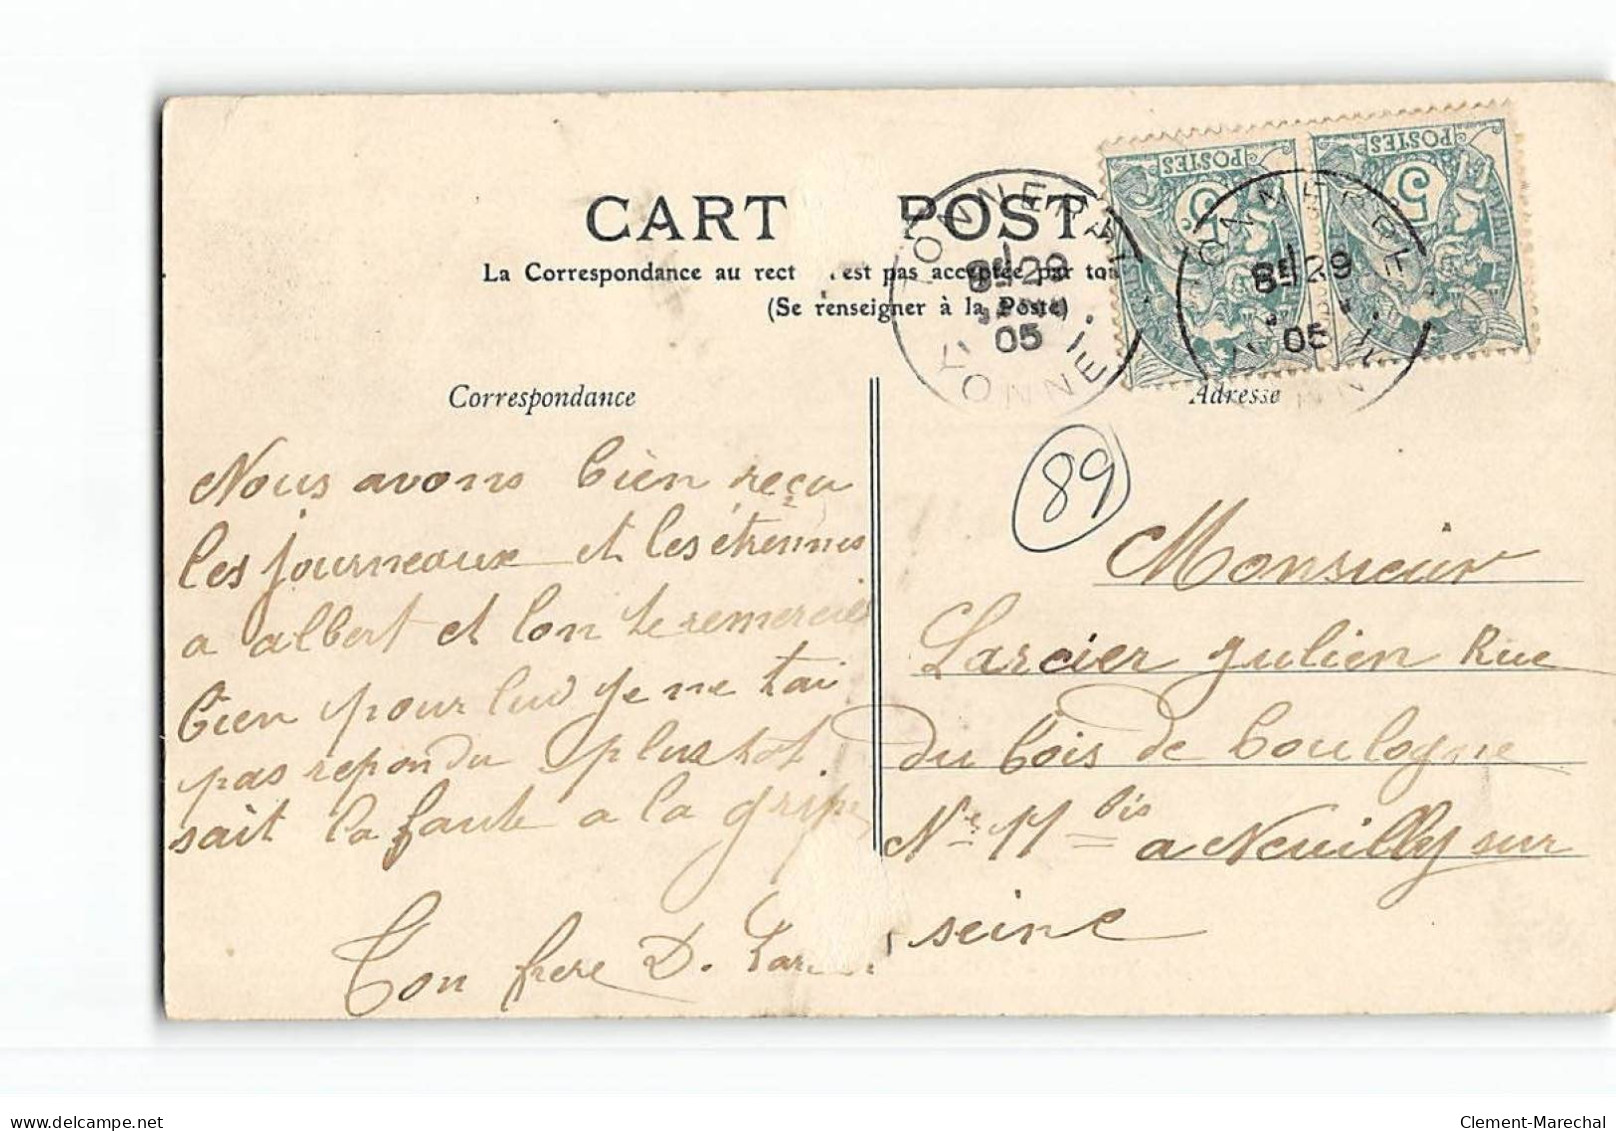 CART POST
La Correspondance au rect est pas acceptée par tou
(Se renseigner à la Poste)
TONNERRE
8E 29
05
YONNE
POSTES
5
POSTES
5
TONNERRE
8E 29
05
Correspondance
Adresse
89
Nous avons bien reçu
les journeaux et les étrennes
a albert et lon te remercie
bien pour lui je ne tai
pas repondu plus tot
sait la faute a la grippe
Ton frere D. Lar
Monsieur
Larcier julien Rue
du bois de boulogne
No 11 bis a Neuilly sur
seine
Clement-Marechal